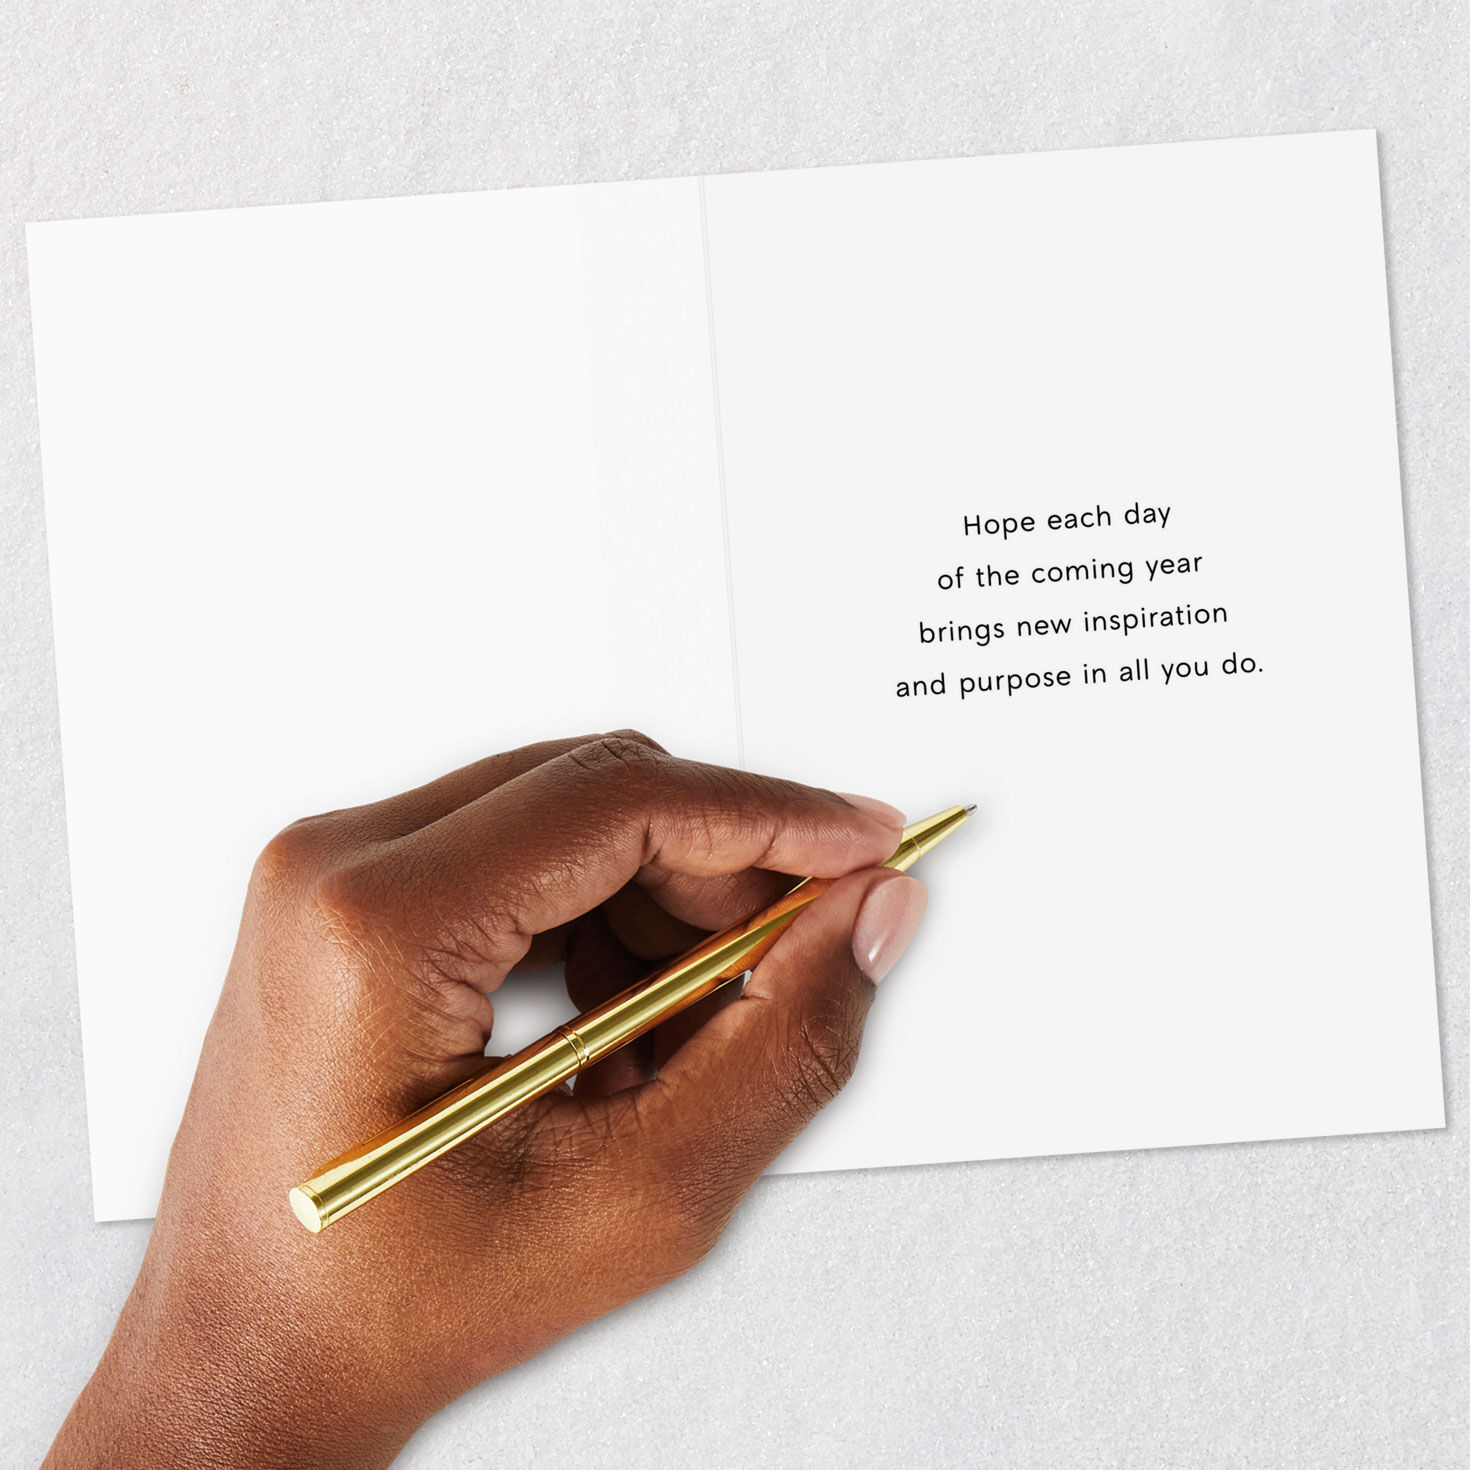 Hope each day
of the coming year
brings new inspiration
and purpose in all you do.